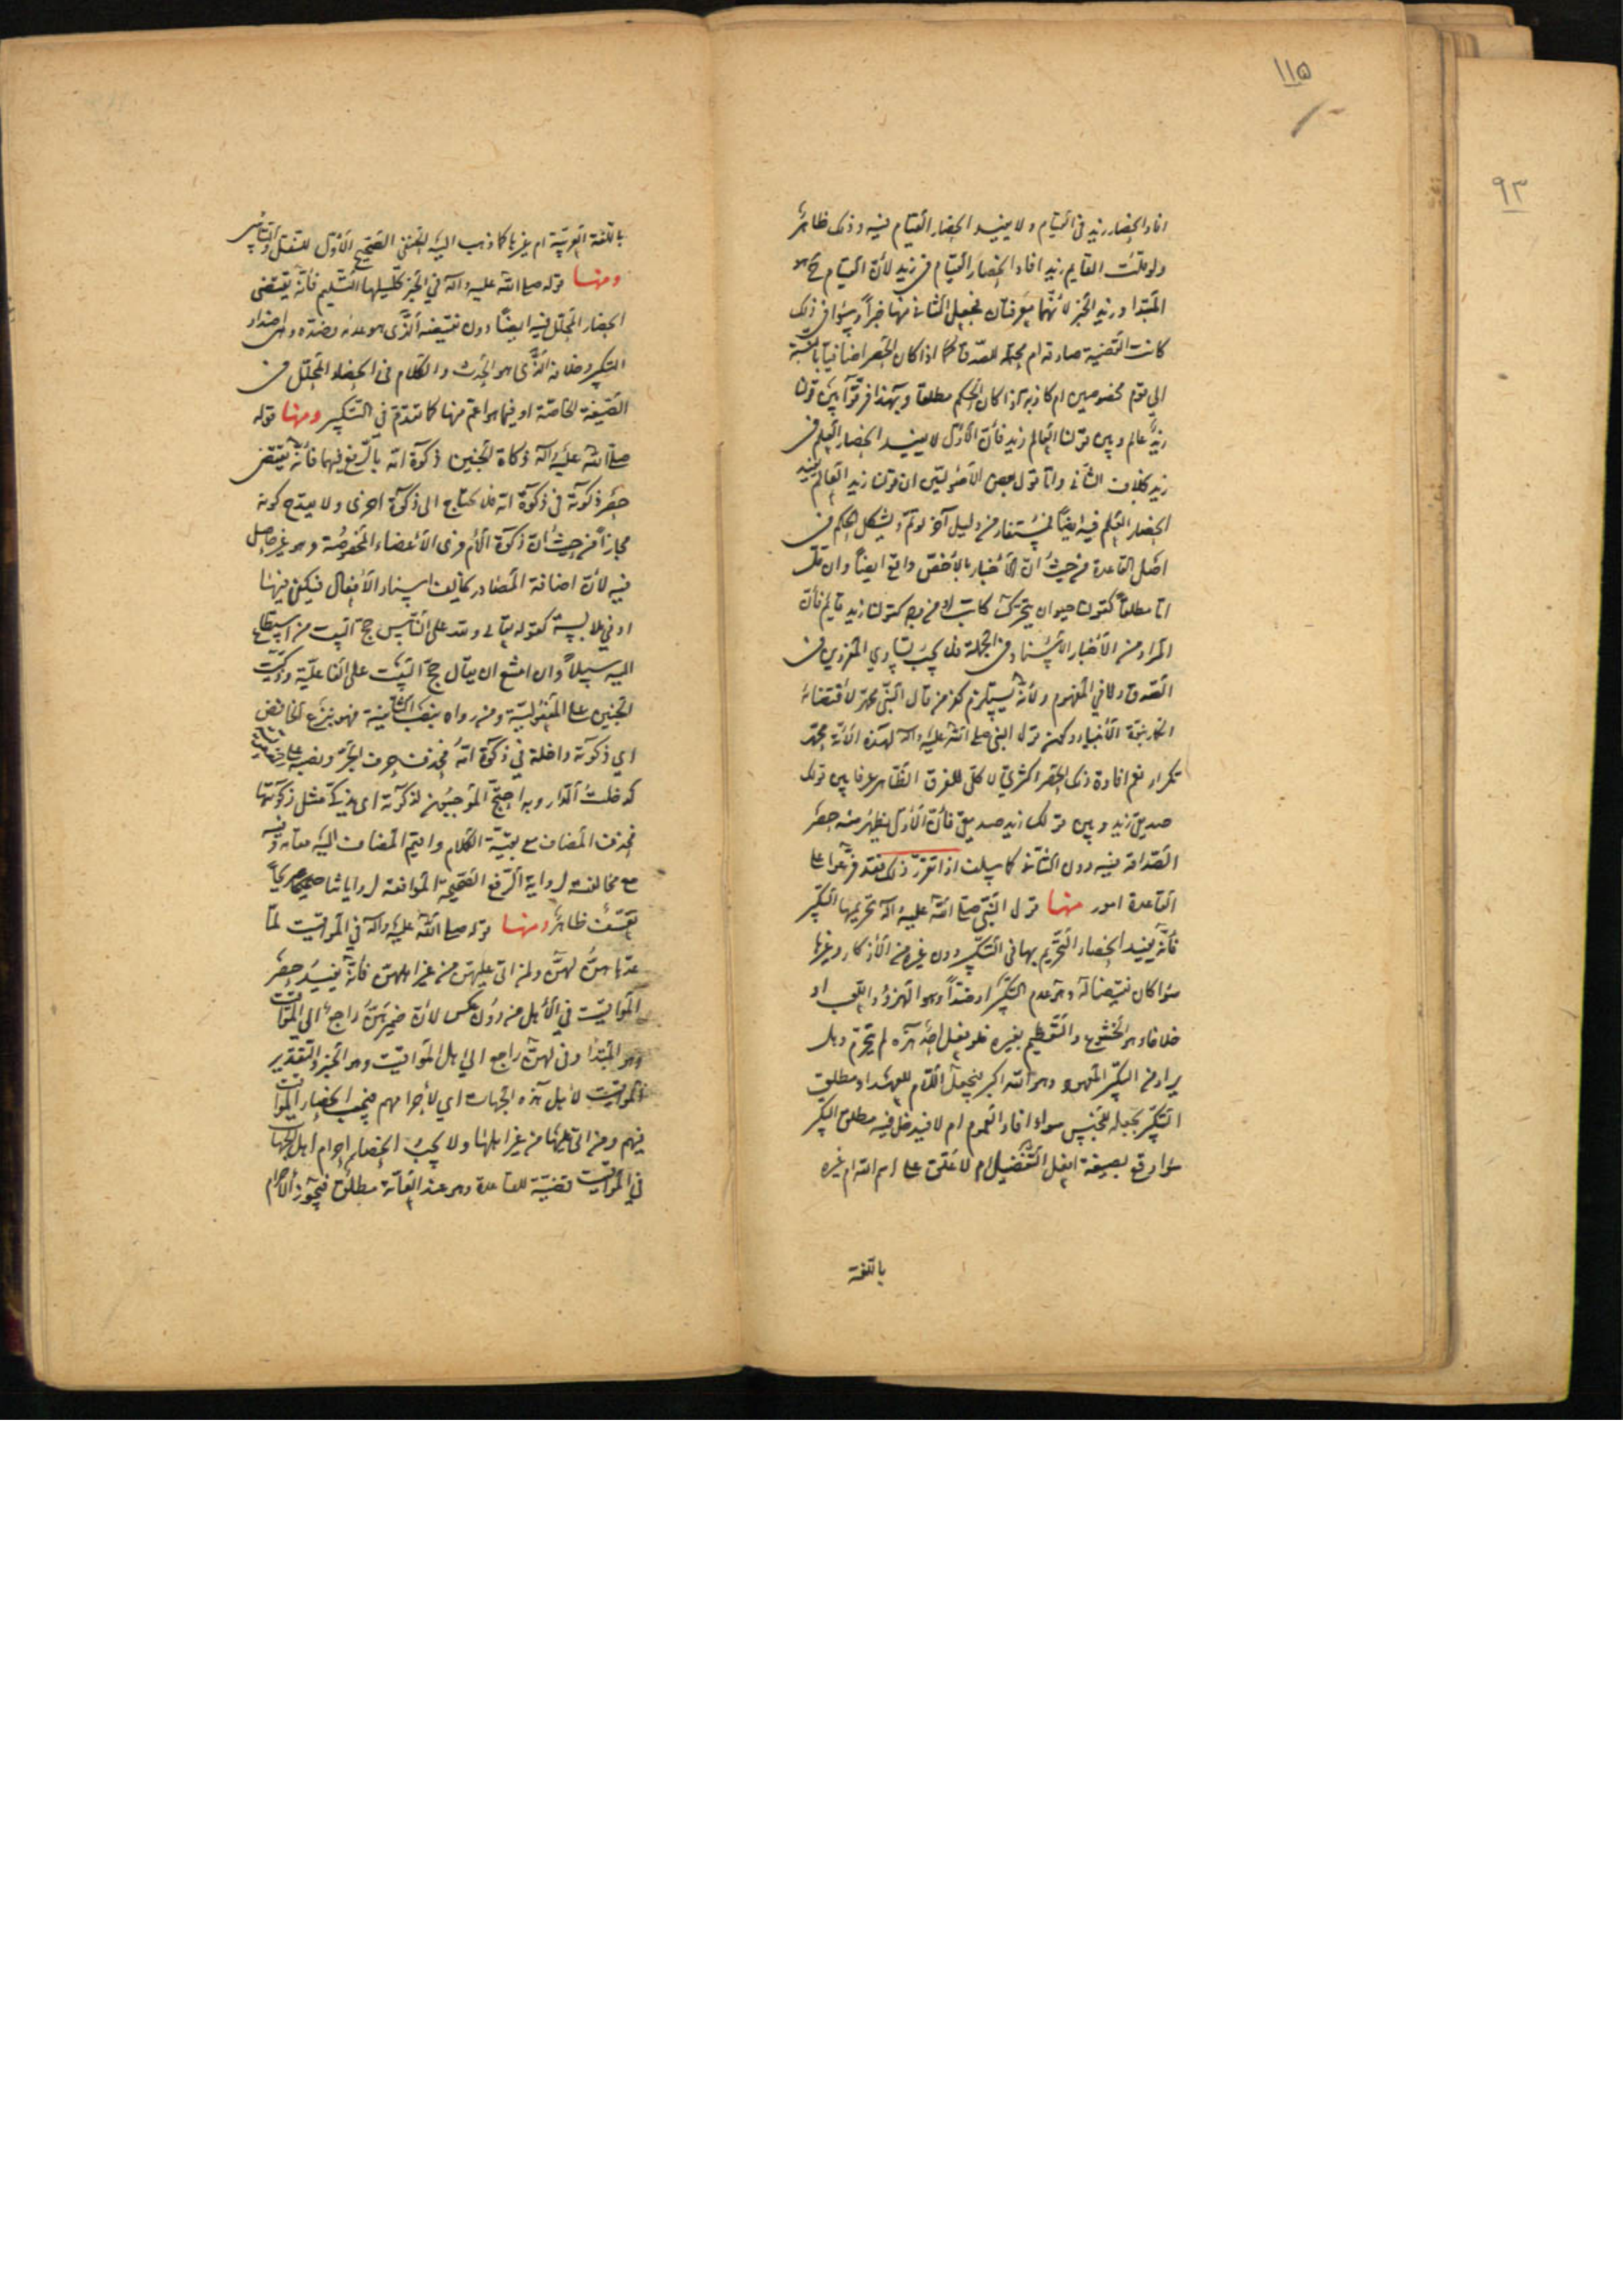 ١١٥
٩٣
افاد انحصار زيد في القيام ولا يفيد انحصار القيام فيه وذلك ظاهر
ولو قلت القايم زيد افاد انحصار القيام في زيد لأن القيام ح هو
المبتدا وزيد الخبر لأنهما معرفتان فجعل الثاني منها خبراً وسواء في ذلك
كانت القضية صادقة ام محتملة للصدق كما اذا كان الحصر اضافيا بالنسبة
الى قوم مخصوصين ام كاذبة اذا كان الحكم مطلقا وبهذا فرقوا بين قولنا
زيد عالم وبين قولنا العالم زيد فان الأول لا يفيد انحصار العلم في
زيد بخلاف الثاني واما قول بعض الأصوليين ان قولنا زيد العالم يفيد
انحصار العلم فيه ايضاً فمستفاد من دليل آخر لو تم ويشكل الحكم في
اصل القاعدة من حيث ان الأخبار بالأخص واقع ايضاً وان
اما مطلقاً كقولنا حيوان يتحرك كاتب او من وجه كقولنا زيد قايم فان
المراد من الأخبار الأسناد في الجملة فلا يجب تساوي الجزوين في
الصدق ولا في المفهوم ولأنه يستلزم كفر من قال النبي محمد لأقتضائه
انحصار نبوة الأنبياء ولكان قول النبي صلى الله عليه وآله لهذه الأمة محمد
تكرار نعم افادة ذلك الحصر اكثري لا كلي للفرق الظاهر عرفا بين قولك
صديق زيد وبين قولك زيد صديق فان الأول يظهر منه حصر
الصداقة فيه دون الثاني كما سلف اذا تقرر ذلك فقد فرعوا على
القاعدة امور منها قول النبي صلى الله عليه وآله تحريمها التكبير
فأنه يفيد انحصار التحريم بها في التكبير دون غيره من الأذكار وغيرها
سواء كان نقيضا له وهو عدم التكبير او ضداً وهو الهزؤ واللعب او
خلافا وهو الخشوع والتعظيم بغيره فلو فعل احد هذه لم يتحرم وهل
يراد من التكبير المعهود وهو الله اكبر فيجعل اللام للعهد او مطلق
التكبير بجعله للجنس سواء افاد العموم ام لا فيدخل فيه مطلق التكبير
سواء وقع بصيغة افعل التفضيل ام لا علق على اسم الله ام غيره
باللغة
باللغة العربية ام غيرها كما ذهب اليه الحنفي الصحيح الأول للنقل والتأسي
ومنها قوله صلى الله عليه وآله في الخبر تحليلها التسليم فأنه يقتضي
انحصار التحلل فيه ايضاً دون نقيضه الذي هو عدمه وضده وهي اضداد
التكبير وخلافه الذي هو الحدث والكلام في انحصار التحلل في
الصيغة الخاصة او فيما هو اعم منها كما تقدم في التكبير ومنها قوله
صلى الله عليه وآله ذكاة الجنين ذكوة امه بالرفع فيهما فأنه يقتضي
حصر ذكوته في ذكوة امه فلا يحتاج الى ذكوة اخرى ولا يقدح كونه
مجازاً من حيث ان ذكوة الأم فرى الأعضاء المخصوصة وهو غير حاصل
فيه لأن اضافة المصادر تخالف اسناد الأفعال فيكفي فيها
ادنى ملابسة كقوله تعالى ولله على الناس حج البيت من استطاع
اليه سبيلاً وان امتنع ان يقال حج البيت على الفاعلية وذكيت
الجنين على المفعولية ومن رواه بنصب الثانية فهو بنزع الخافض
اي ذكوته داخلة في ذكوة امه فحذف حرف الجر ونصبه على
كدخلت الدار وبه احتج الموجبون لذكوته اي يذكى مثل ذكوتها
فحذف المضاف مع بقية الكلام واقيم المضاف اليه مقامه وفيه
مع مخالفته لرواية الرفع الصحيحة الموافقة لرواياتنا صريحاً
تعسف ظاهر ومنها قوله صلى الله عليه وآله في المواقيت لما
عدها هن لهن ولمن اتى عليهن من غير اهلهن فأنه يفيد حصر
المواقيت في الأهل من دون عكس لأن ضمير هن راجع الى المواقيت
وهو المبتدا وفي لهن راجع الى اهل المواقيت وهو الخبر والتقدير
المواقيت لأهل هذه الجهات اي لأحرامهم فيجب انحصار المواقيت
فيهم ومن اتى عليها من غير اهلها ولا يجب انحصار احرام اهل الجهات
في المواقيت قضية للقاعدة وهو عند العامة مطلق فيجوز الأحرام